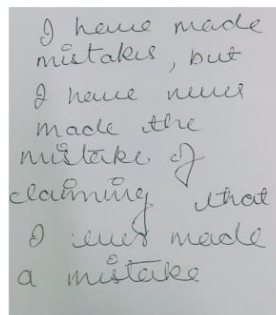 I have made
mistakes, but
I have never
made the
mistake of
claiming that
I ever made
a mistake